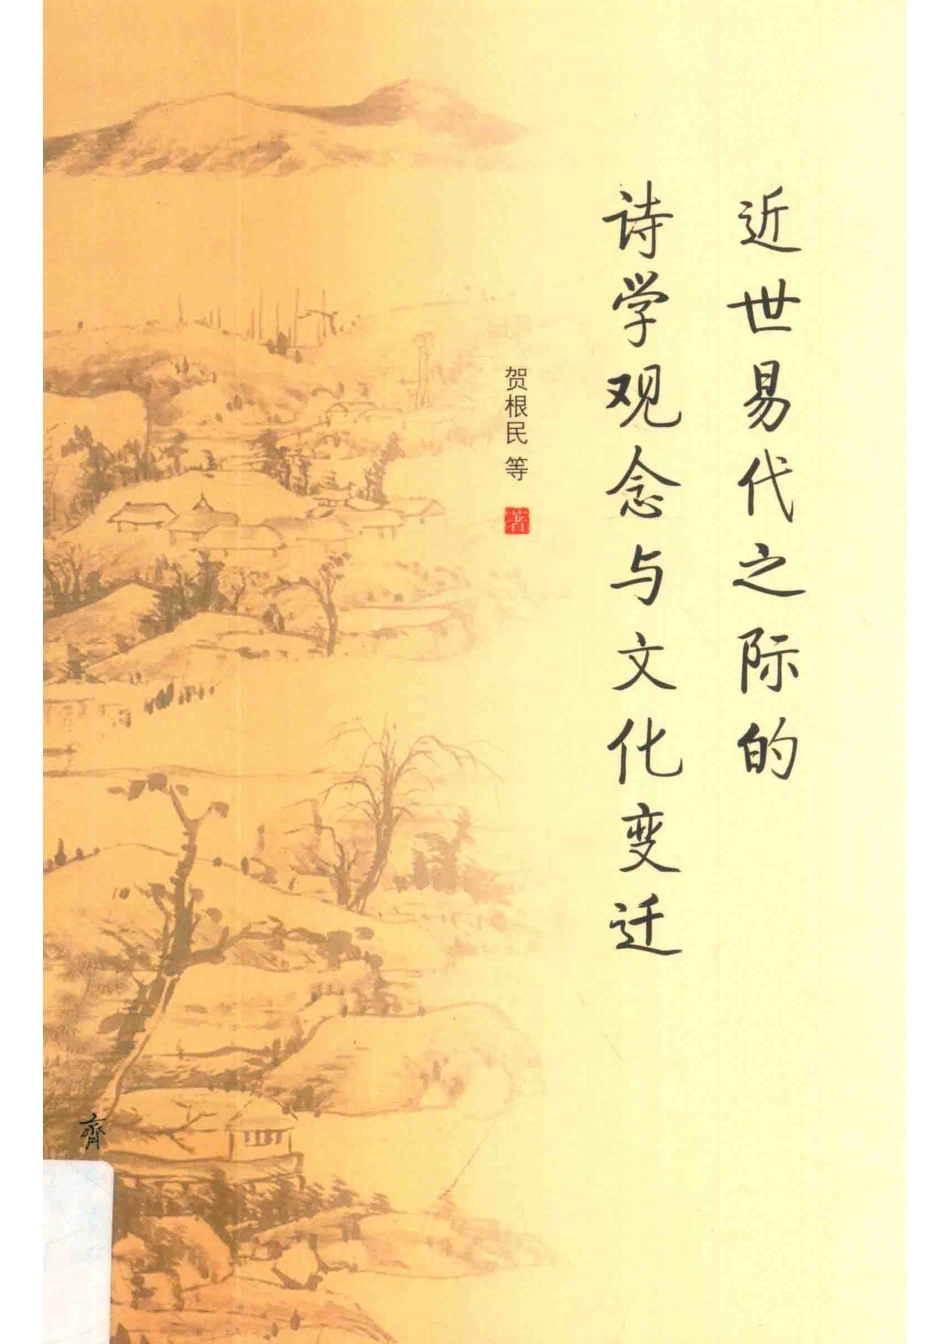 近世易代之际的
诗学观念与文化变迁
贺根民 等 著
齊